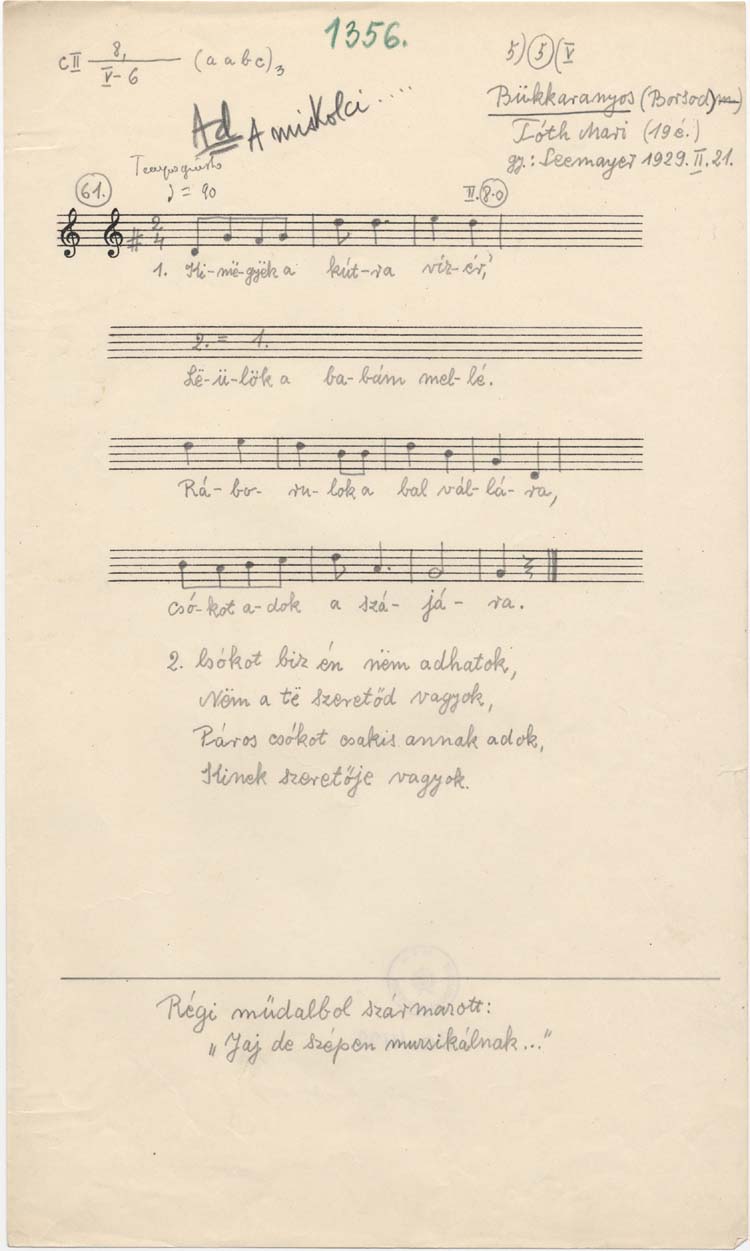 1356.
CII 8, V-6 (a a b c)3
5) 5 (V
Ad A miskolci .....
Bükkaranyos (Borsod)
Tóth Mari (19 é.)
gy.: Seemayer 1929. II. 21.
61.
♩ = 90
II. 8.0
2/4
1. Ki-më-gyëk a kút-ra víz-ér,'
2. = 1.
Lë-ü-lök a ba-bám mel-lé.
Rá-bo-ru-lok a bal vál-lá-ra,
Csó-kot a-dok a szá-já-ra.
2. Csókot biz én nëm adhatok,
Nëm a të szeretőd vagyok,
Páros csókot csakis annak adok,
Kinek szeretője vagyok.
Régi műdalbol származott:
„Jaj de szépen muzsikálnak..."